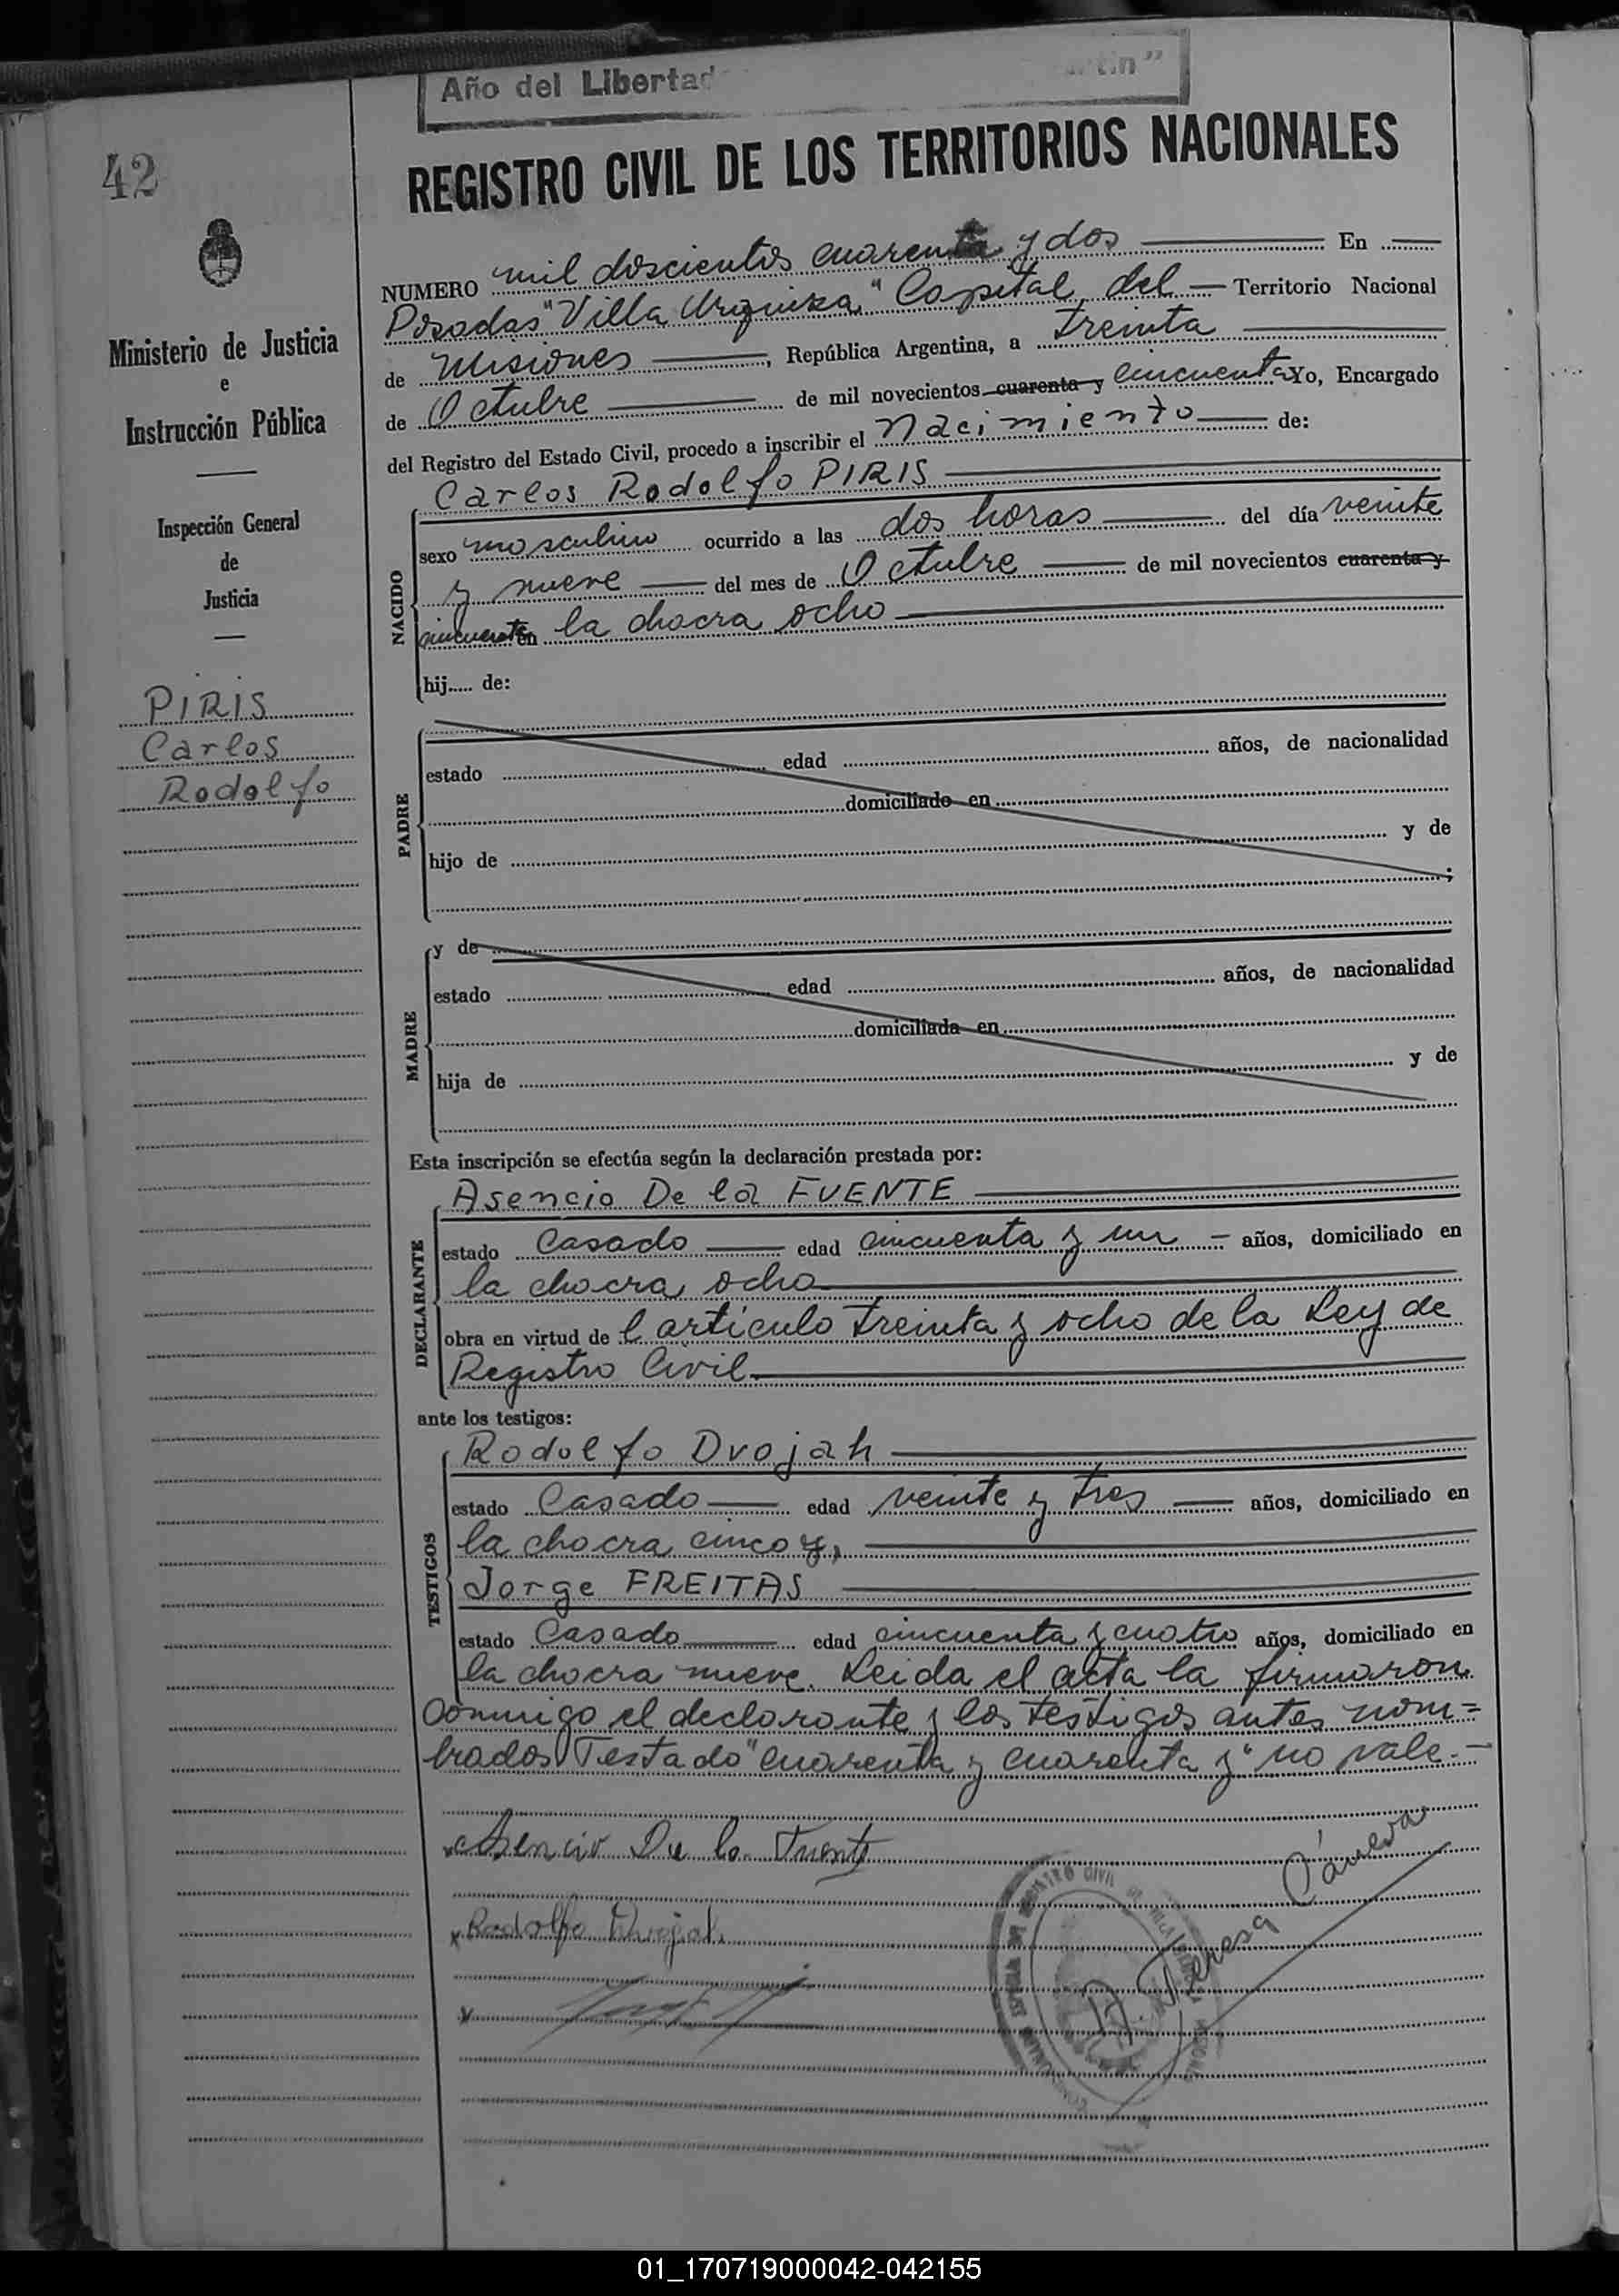 Año del Libertad tin"
REGISTRO CIVIL DE LOS TERRITORIOS NACIONALES
42
NUMERO mil doscientos cuarenta y dos En
Posadas "Villa Urquiza" Capital, del Territorio Nacional
de Misiones, República Argentina, a treinta
de Octubre de mil novecientos cuarenta y cincuenta Yo, Encargado
del Registro del Estado Civil, procedo a inscribir el Nacimiento de:
Ministerio de Justicia
e
Instrucción Pública
Inspección General
de
Justicia
PIRIS
Carlos
Rodolfo
NACIDO
Carlos Rodolfo PIRIS
sexo masculino ocurrido a las dos horas del día veinte
y nueve del mes de Octubre de mil novecientos cuarenta y
cincuenta en la chacra ocho
hij..... de:
PADRE
estado edad años, de nacionalidad
domiciliado en
hijo de y de
;
MADRE
y de
estado edad años, de nacionalidad
domiciliada en
hija de y de
Esta inscripción se efectúa según la declaración prestada por:
DECLARANTE
Asencio De la FUENTE
estado Casado edad cincuenta y un años, domiciliado en
la chacra ocho
obra en virtud de l artículo treinta y ocho de la Ley de
Registro Civil
ante los testigos:
TESTIGOS
Rodolfo Dvojah
estado Casado edad veinte y tres años, domiciliado en
la chacra cinco y,
Jorge FREITAS
estado Casado edad cincuenta y cuatro años, domiciliado en
la chacra nueve. Leida el acta la firmaron
conmigo el declarante y los testigos antes nom=
brados Testado "cuarenta y cuarenta y" no vale.-
Asencio De la Fuente
x Rodolfo Dvojah
x
REGISTRO CIVIL
A. Teresa Cáneva
01_170719000042-042155